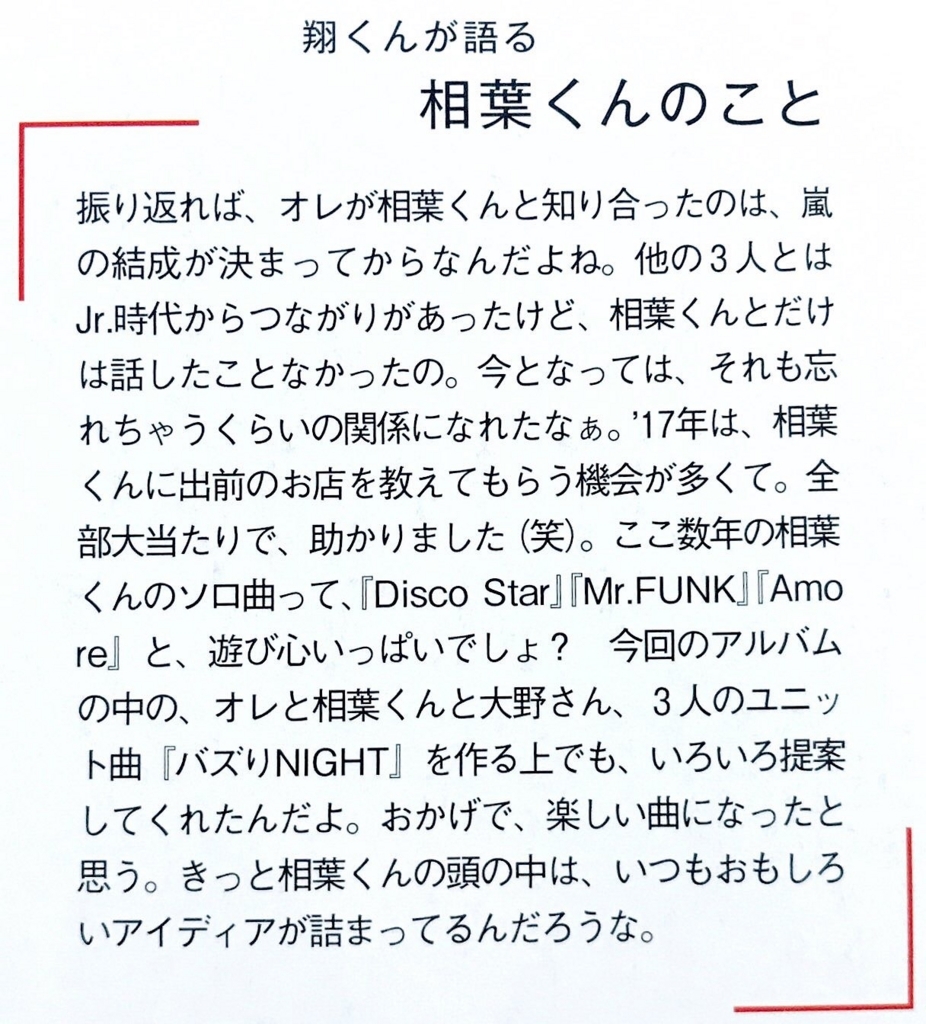 翔くんが語る
相葉くんのこと
振り返れば、オレが相葉くんと知り合ったのは、嵐
の結成が決まってからなんだよね。他の3人とは
Jr.時代からつながりがあったけど、相葉くんとだけ
は話したことなかったの。今となっては、それも忘
れちゃうくらいの関係になれたなぁ。’17年は、相葉
くんに出前のお店を教えてもらう機会が多くて。全
部大当たりで、助かりました（笑）。ここ数年の相葉
くんのソロ曲って、『Disco Star』『Mr.FUNK』『Amo
re』と、遊び心いっぱいでしょ？　今回のアルバム
の中の、オレと相葉くんと大野さん、3人のユニッ
ト曲『バズりNIGHT』を作る上でも、いろいろ提案
してくれたんだよ。おかげで、楽しい曲になったと
思う。きっと相葉くんの頭の中は、いつもおもしろ
いアイディアが詰まってるんだろうな。